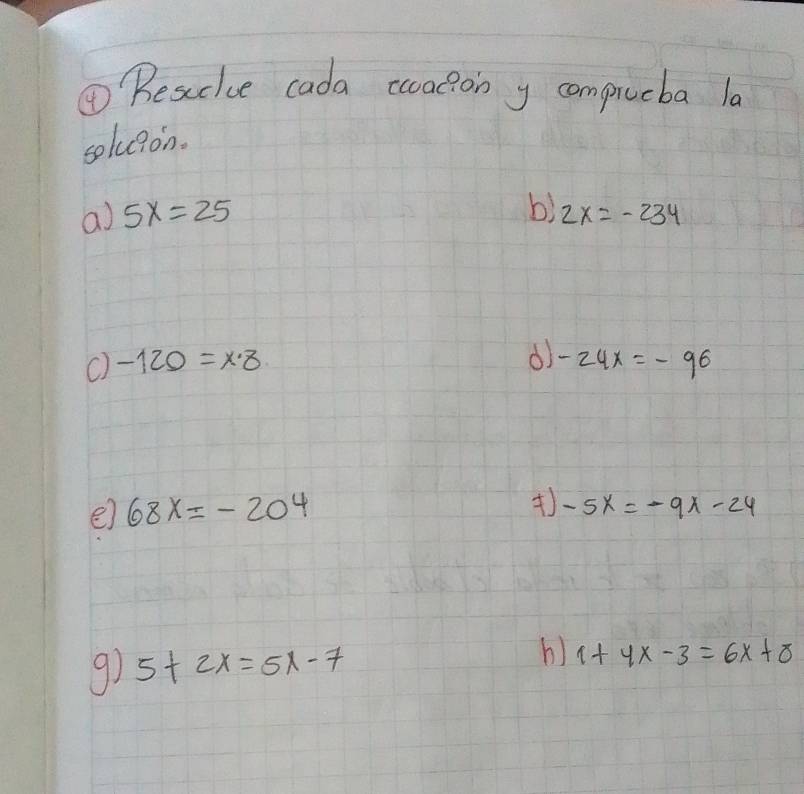 ④ Resuelve cada ecuación y comprueba la
solución.
a) 5x = 25 b) 2x = - 234
c) -120 = x·8 d) -24x = - 96
e) 68x = - 204 f) -5x = -9x - 24
g) 5 + 2x = 5x - 7 h) 1 + 4x - 3 = 6x + 8